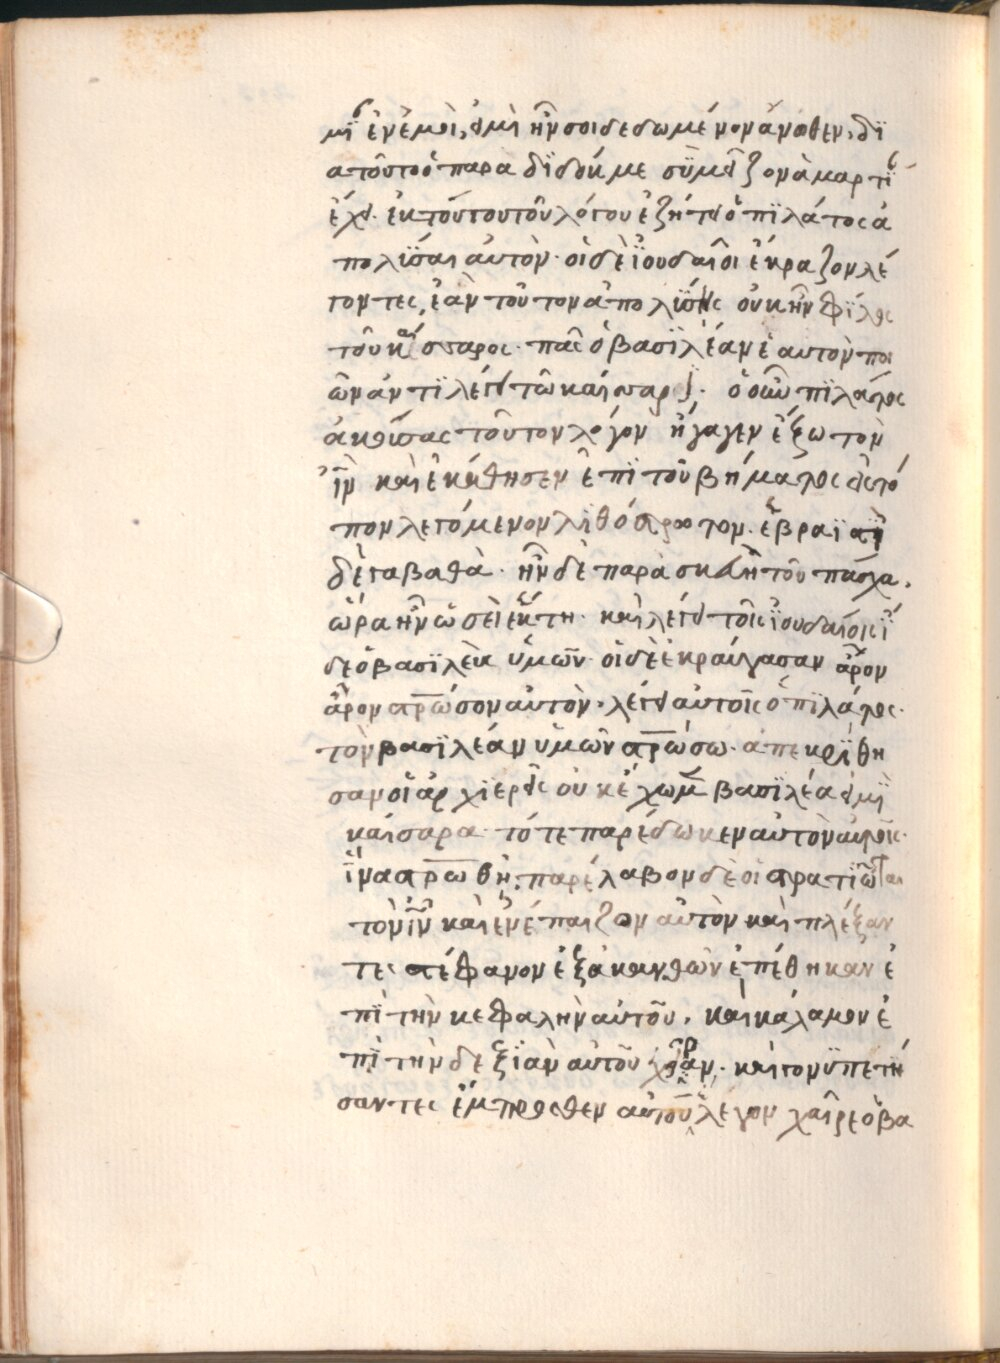 μϊ ἐνἐμοὶ, εἰμὶ ἦν σοι δεδωμένον ἄνωθεν, δϊ
ατοῦτο ὁ παρα διδούς με σοϊ μείζον ἁμαρτϊ
ἔχει. ἐκ τούτου τοῦ λόγου ἐζήτει ὁ πϊλάτος ἀ
πολϊσαι αὐτὸν. οἱ δὲ ἰουδαῖοι ἔκραζον λέ
γοντες, ἐὰν τοῦτον ἀπολϊσεις οὐκ ἦν φϊλος
τοῦ καίσαρος. πᾶς ὁ βασϊλέαν ἑαυτὸν ποι
ῶν ἀντϊλέγει τῶ καίσαρι. ὁ οὖν πϊλάτος
ἀκούσας τοῦτον λόγον ἤγαγεν ἔξω τὸν
ἰν καὶ ἐκάθησεν ἐπϊ τοῦ βήματος εἰς τό
πον λεγόμενον λϊθόστρωτον. ἑβραϊστϊ
δὲ γαβαθὰ. ἦν δὲ παρὰσκευὴ τοῦ πάσχα.
ὥρα ἦν ὡσεὶ ἕκτη. καὶ λέγει τοῖς ἰουδαίοις ἴ
δε ὁ βασϊλεὺς ὑμῶν. οἱ δὲ ἐκραύγασαν ἆρον
ἆρον στρωσον αὐτὸν. λέγει αὐτοῖς ὁ πϊλάτος.
τὸν βασϊλέαν ὑμῶν στρώσω. ἀπεκρϊθη
σαν οἱ ἀρχϊερεῖς οὐκ ἔχωμεν βασϊλέα εἰμϊ
καίσαρα. τότε παρέδωκεν αὐτὸν αὐτοῖς.
ἵνα στρωθῆ. παρέλαβον δὲ οἱ στρατϊῶται
τὸν ἰν καὶ ἐνέπαιζον αὐτὸν καὶ πλέξαν
τες στέφανον ἐξ ἀκανθῶν ἐπέθηκαν ἐ
πϊ τὴν κεφαλὴν αὐτοῦ. καὶ κάλαμον ἐ
πϊ τὴν δεξϊὰν αὐτοῦ χεῖραν. καὶ γονϋπετή
σαντες ἔμπροσθεν αὐτοῦ ἔλεγον χαῖρε ὁ βα